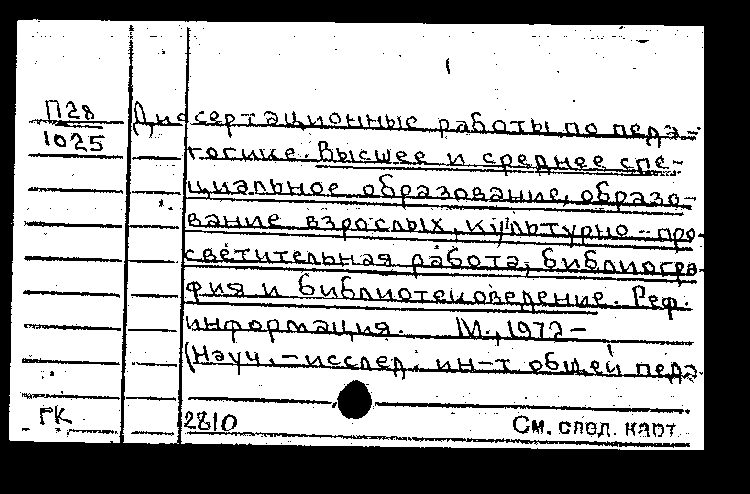 П28
1025
Диссертационные работы по педа-
гогике. Высшее и среднее спе-
циальное образование, образо-
вание взрослых, культурно-про-
светительная работа, библиогра-
фия и библиотековедение. Реф.
информация. М., 1972-
(Науч.-исслед. ин-т общей педа
ГК
2810
См. след. карт.